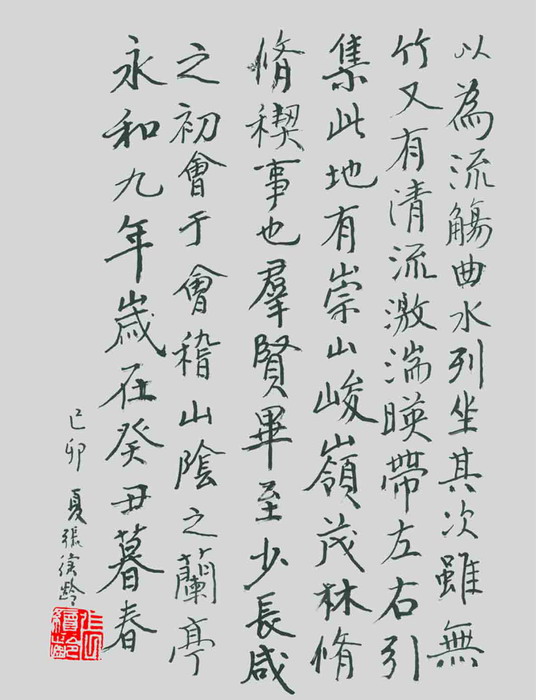 永和九年歲在癸丑暮春
之初會于會稽山陰之蘭亭
脩稧事也羣賢畢至少長咸
集此地有崇山峻嶺茂林脩
竹又有清流激湍暎帶左右引
以為流觴曲水列坐其次雖無
己卯 夏 張齡